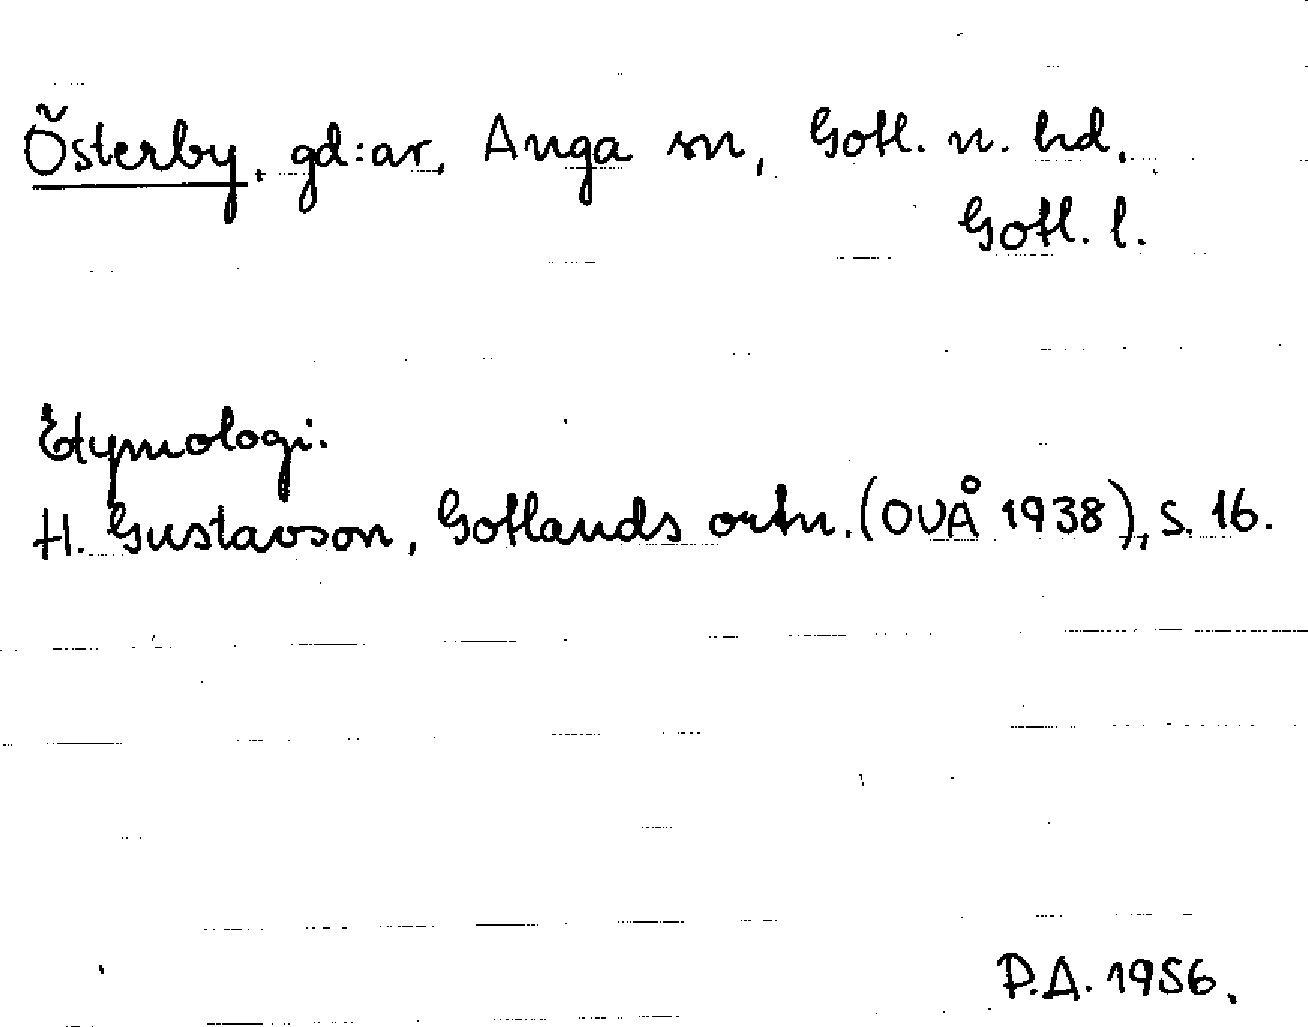 Österby, gd:ar, Anga sn, Gotl. n. hd,
Gotl. l.
Etymologi.
H. Gustavson, Gotlands ortn. (OUÅ 1938), s. 16.
P.A. 1956.